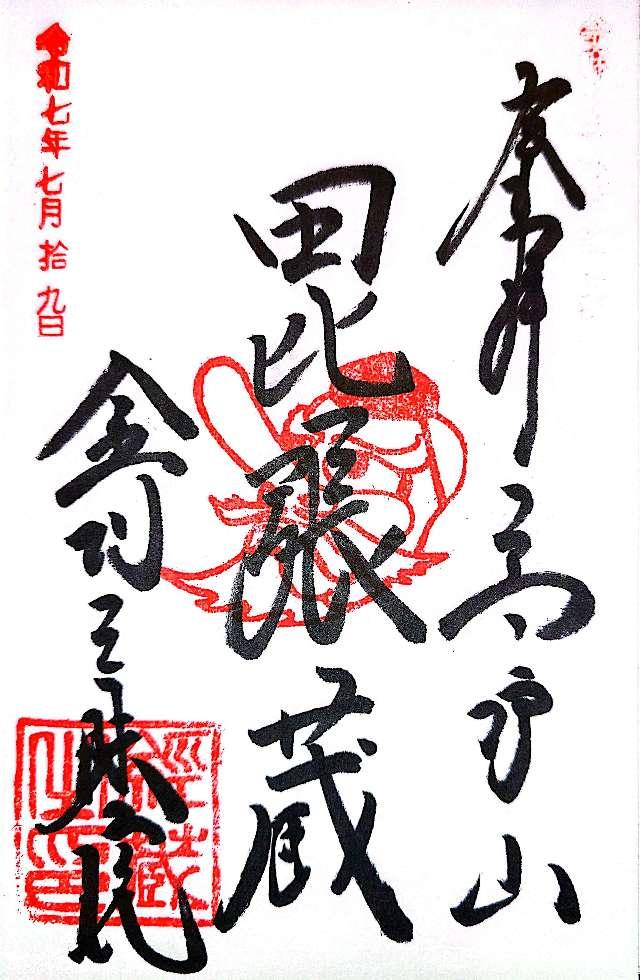 奉拝 高野山
毘張蔵
金剛三昧院
令和七年七月拾九日
経蔵之印